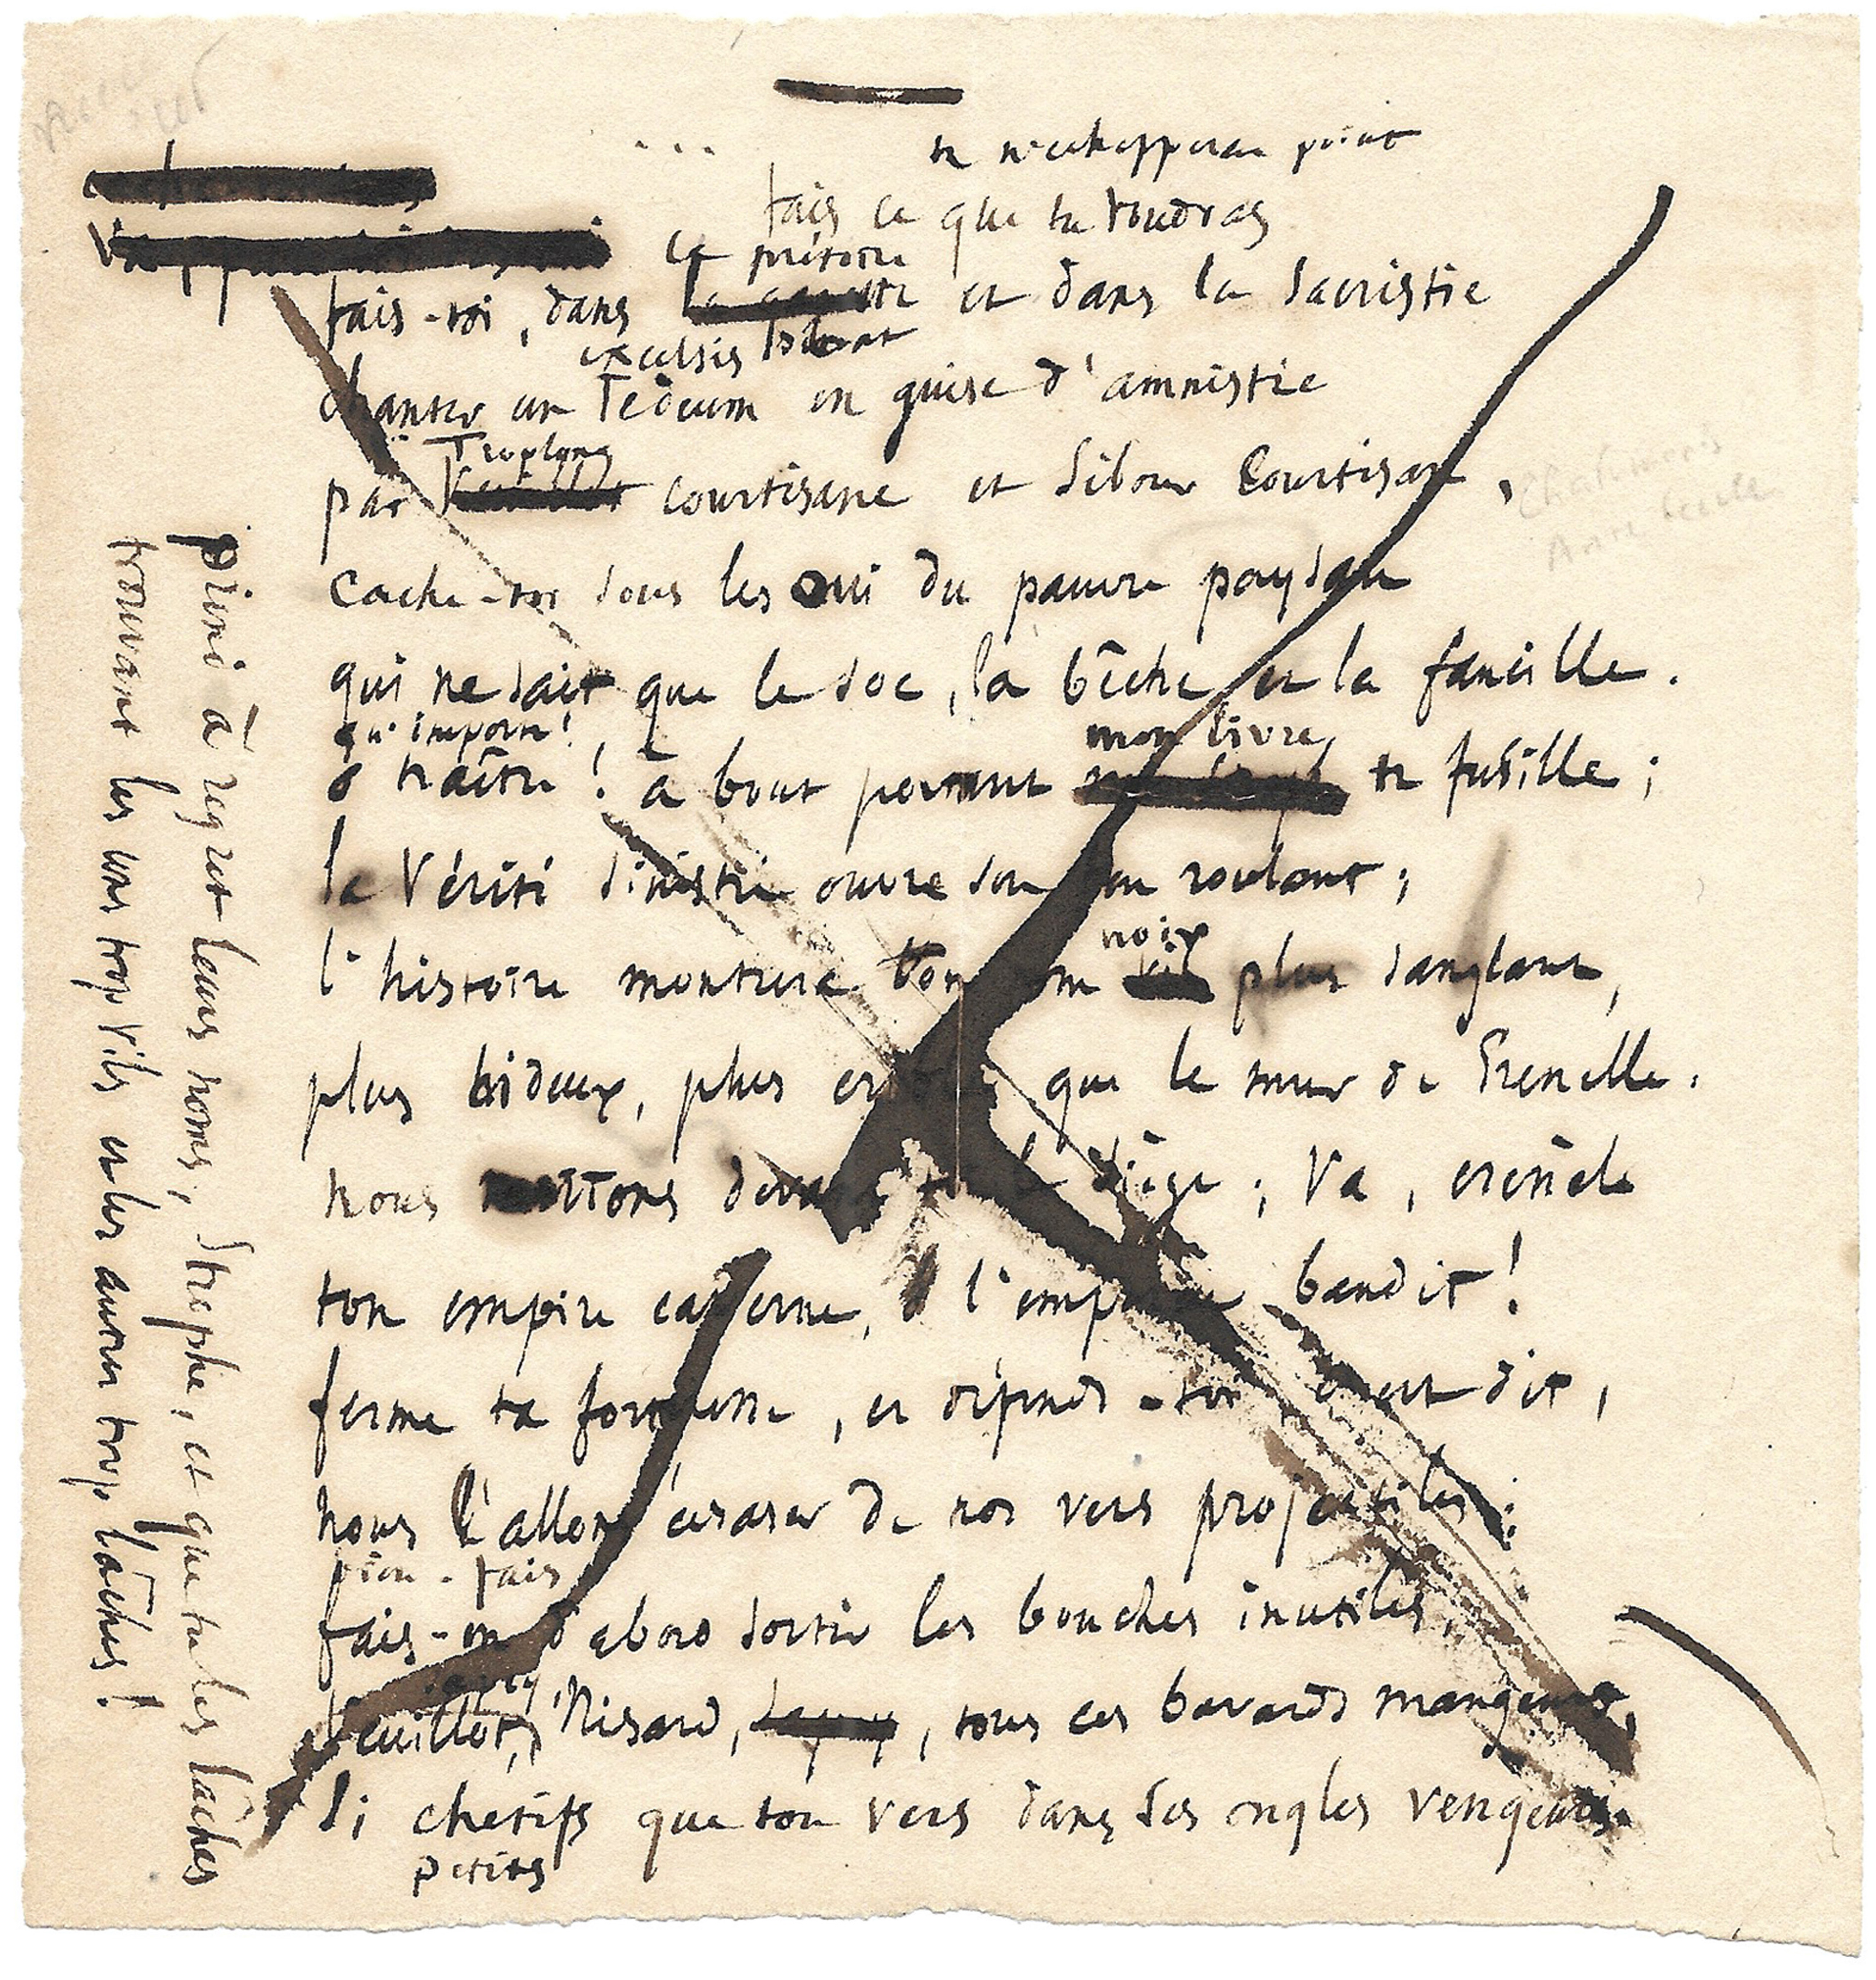 tu n'échapperas point
fais ce que tu voudras
le prétoire
fais-toi, dans et dans la sacristie
excelsis
chanter un Tedeum en guise d'amnistie
Troplong
par courtisane et Sibour courtisan,
cache-toi sous les oui du pauvre paysan
qui ne sait que le soc, la bêche et la faucille.
qu'importe!
ô traître! à bout portant mon livre te fusille;
la Vérité sinistre ouvre son feu roulant;
noir
l'histoire montrera ton nom vil plus sanglant,
plus hideux, plus que le mur de Grenelle.
nous mettons devant le siège; va, crénèle
ton empire caverne, ô l'empereur bandit!
ferme ta forteresse, et défends-toi c'est dit,
nous t'allons écraser de nos vers projectiles;
fais
fais-en d'abord sortir les bouches inutiles,
Veuillot, Nisard, Leroy, tous ces bavards mangeurs,
si chétifs que ton vers dans ses ongles vengeurs
petits
prend à regret leurs noms, strophe, et que tu les lâches
trouvant les uns trop vils et les autres trop lâches!